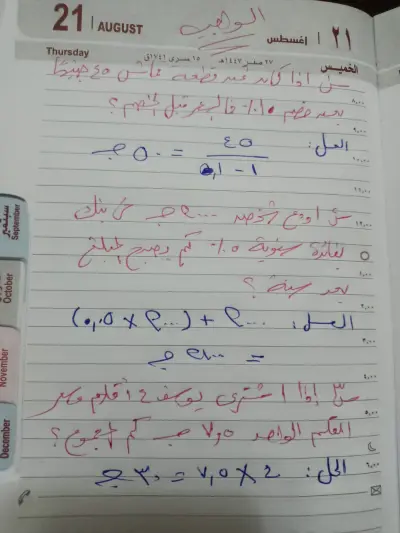 21 AUGUST
الواجب
٢١ إغسطس
Thursday
الخميس
س١ إذا كان ثمن قطعة قماش ٤٥ جنيهًا
بعد خصم ١٠٪ فما السعر قبل الخصم؟
الحل: ٤٥ / ١ - ٠,١ = ٥٠ جـ
س٢ أودع شخص ٢٠٠٠ جـ في بنك
بفائدة سنوية ٥٪ كم يصبح المبلغ
بعد سنة؟
الحل: ٢٠٠٠ + (٢٠٠٠ × ٠,٠٥)
= ٢١٠٠ جـ
س٣ إذا اشترى يوسف ٤ أقلام وسعر
القلم الواحد ٧,٥ جـ كم المجموع؟
الحل: ٤ × ٧,٥ = ٣٠ جـ
سبتمبر
September
October
November
December